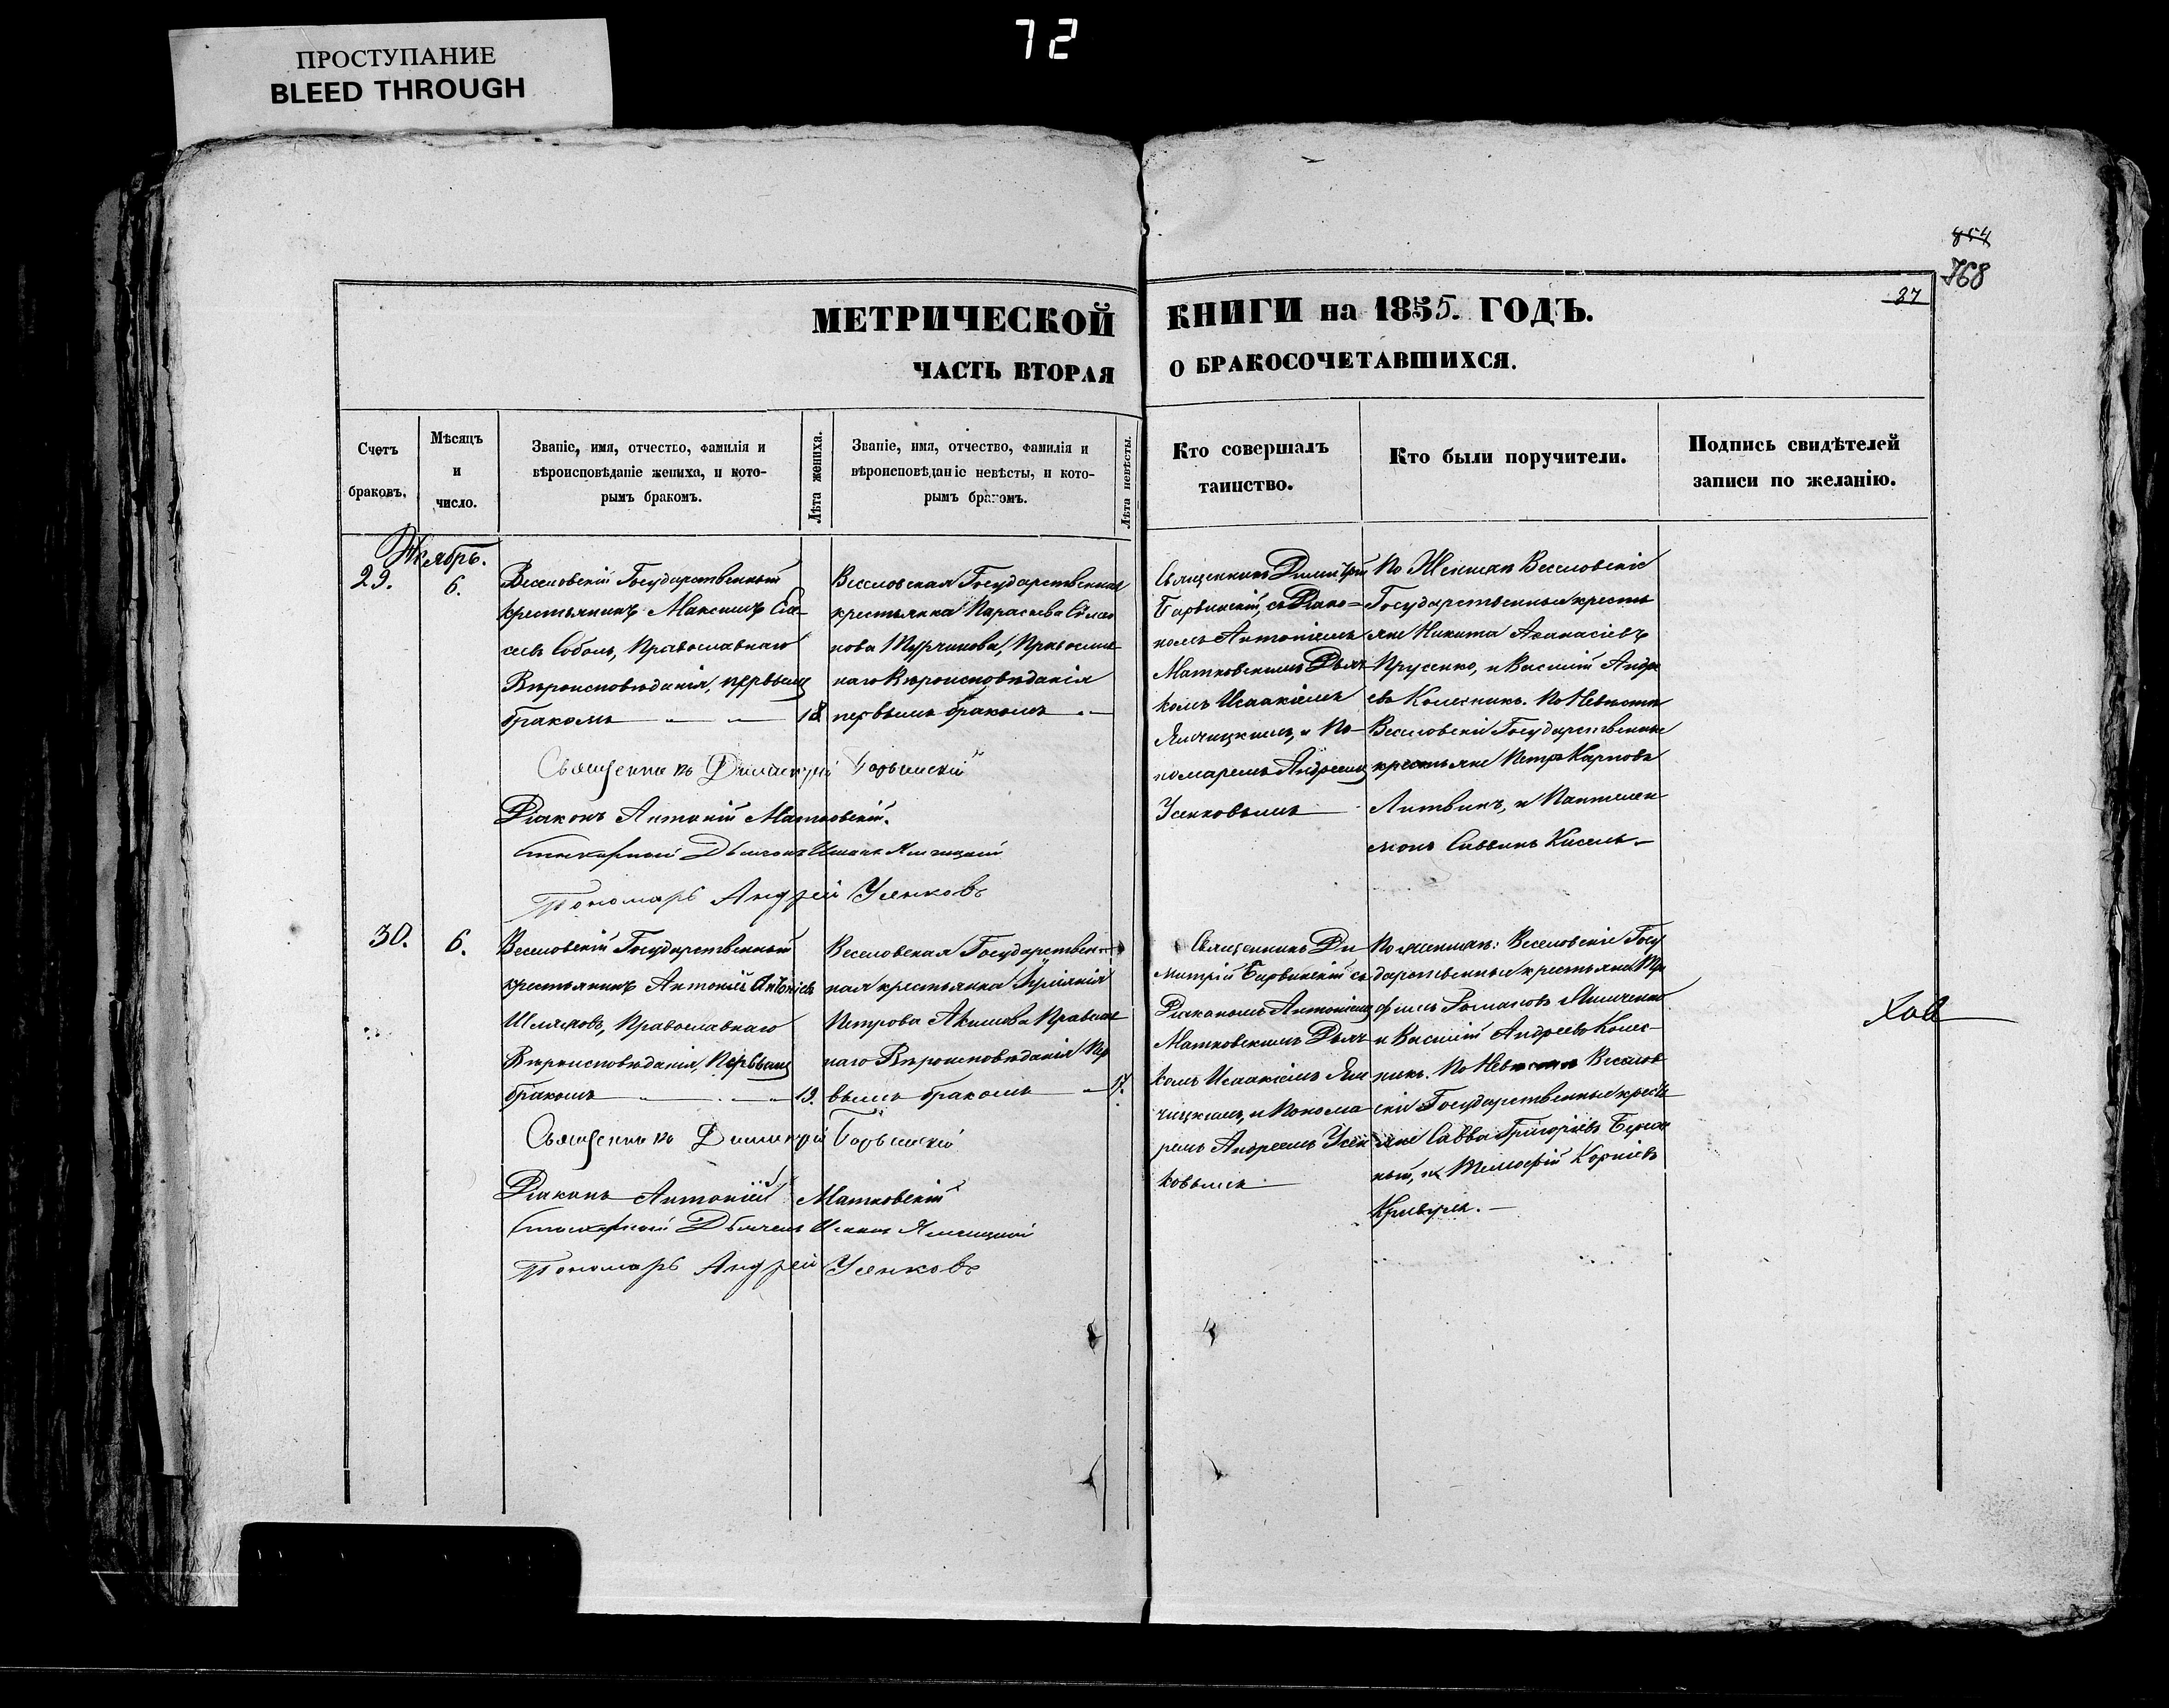 72
ПРОСТУПАНИЕ
BLEED THROUGH
854
768
37
МЕТРИЧЕСКОЙ КНИГИ на 1855. ГОДЪ.
ЧАСТЬ ВТОРАЯ О БРАКОСОЧЕТАВШИХСЯ.
Счетъ
браковъ.
Мѣсяцъ
и
число.
Званіе, имя, отчество, фамилія и
вѣроисповѣданіе жениха, и кото-
рымъ бракомъ.
Лѣта жениха.
Званіе, имя, отчество, фамилія и
вѣроисповѣданіе невѣсты, и кото-
рымъ бракомъ.
Лѣта невѣсты.
Кто совершалъ
таинство.
Кто были поручители.
Подпись свидѣтелей
записи по желанію.
29.
6.
Веселовскій Государственный
крестьянинъ Максимъ
Соболь, Православнаго
Вѣроисповѣданія, первымъ
бракомъ
18
Веселовская Государственная
крестьянка Параскева
нова Турчинова, Православ
наго Вѣроисповѣданія
первымъ бракомъ
Священникъ Димитрій
Барвинскій, съ Діако=
номъ Антоніемъ
Матковскимъ Дьяч
комъ Исаакіемъ
Ямчицкимъ, и По-
номаремъ Андреемъ
Усенковымъ
По Женихѣ Веселовскіе
Государственные кресть
яне Никита Афанасіевъ
Прусенко, и Василій Андре
евъ Колесникъ. По Невѣстѣ
Веселовскіе Государственные
крестьяне Петръ Карповъ
Литвинъ, и Пантелей
монъ Саввинъ Кисель
Священникъ Димитрій Барвинскій
Діаконъ Антоній Матковскій.
Дьячокъ Исаакъ Ямчицкій
Пономарь Андрей Усенковъ
30.
6.
Веселовскій Государственный
крестьянинъ Антоній Антоніевъ
Шляховъ, Православнаго
Вѣроисповѣданія, Первымъ
бракомъ
19.
Веселовская Государствен
ная крестьянка Іуліанія
Петрова Акимова Православ
наго Вѣроисповѣданія Пер
вымъ бракомъ
17.
Священникъ Ди
митрій Барвинскій съ
Діакономъ Антоніемъ
Матковскимъ Дьяч
комъ Исаакіемъ Ям
чицкимъ, и Понома
ремъ Андреемъ Усен
ковымъ
По женихѣ: Веселовскіе Госу
дарственные крестьяне Тро
фимъ Романовъ
и Василій Андреевъ Колес-
никъ. По Невѣстѣ Веселов
скіе Государственные кресть
яне Савва Григоріевъ
ный, и Тимофій Корніевъ
Кривуля.
Священникъ Димитрій Барвинскій
Діаконъ Антоній Матковскій
Дьячокъ Исаакъ Ямчицкій
Пономарь Андрей Усенковъ